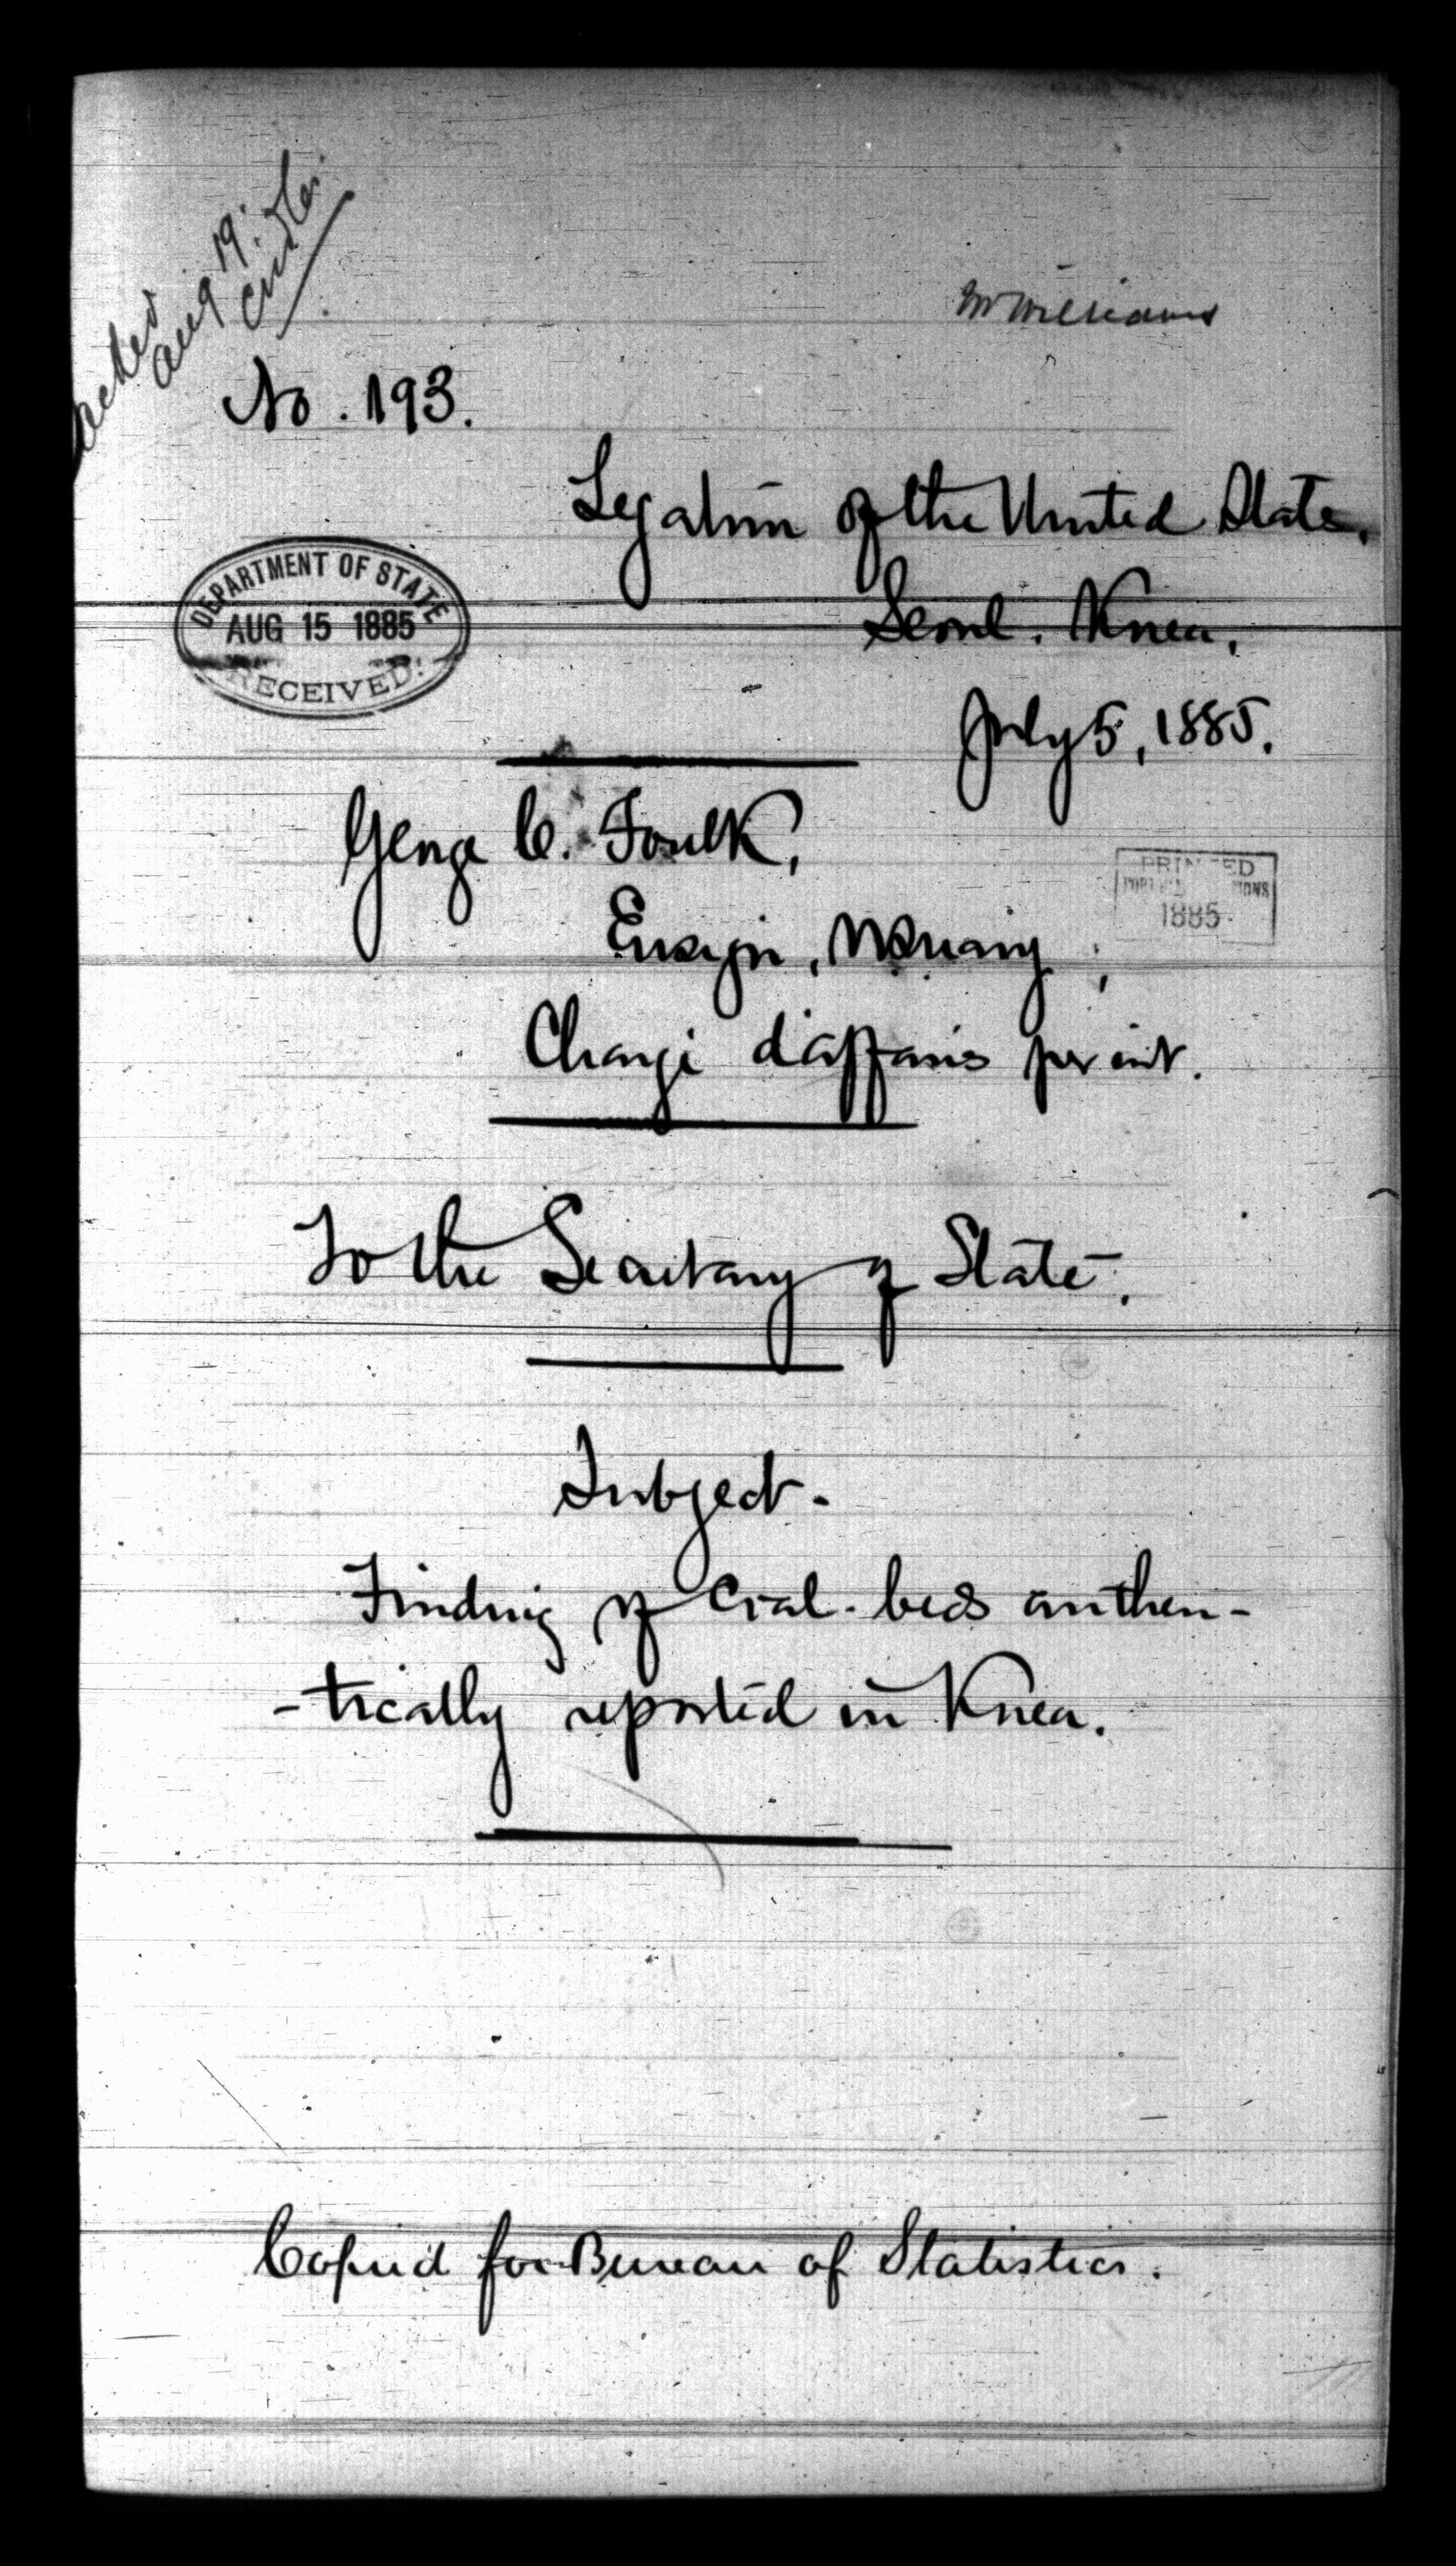 Aug 19.
Mr Williams
No. 193.
Legation of the United States,
Seoul. Korea,
DEPARTMENT OF STATE
AUG 15 1885
RECEIVED.
July 5, 1885.
George C. Foulk,
PRINTED
1885
Ensign, U.S. Navy;
Chargé d'affaires per int.
To the Secretary of State.
Subject.
Finding of coal-beds authen-
-tically reported in Korea.
Copied for Bureau of Statistics.